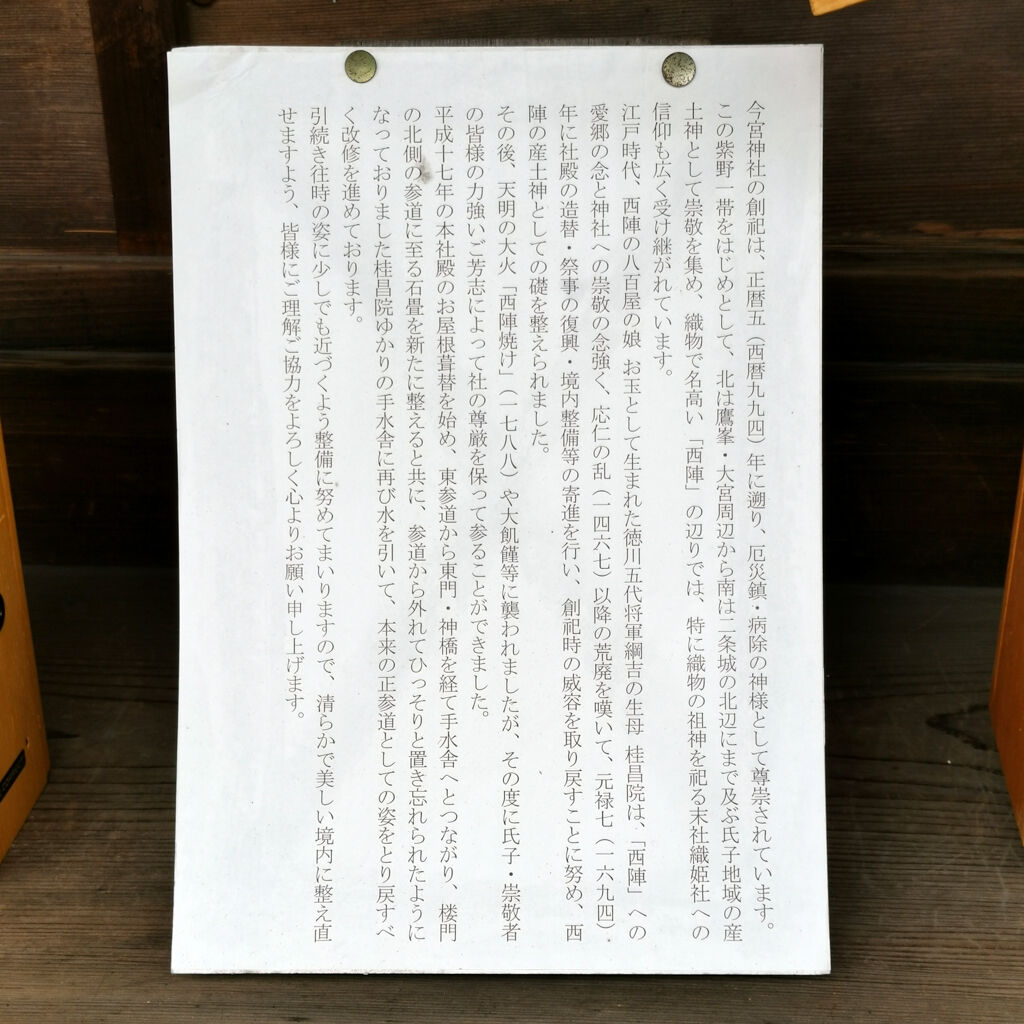 今宮神社の創祀は、正暦五（西暦九九四）年に遡り、厄災鎮・病除の神様として尊崇されています。
この紫野一帯をはじめとして、北は鷹峯・大宮周辺から南は二条城の北辺にまで及ぶ氏子地域の産
土神として崇敬を集め、織物で名高い「西陣」の辺りでは、特に織物の祖神を祀る末社織姫社への
信仰も広く受け継がれています。
江戸時代、西陣の八百屋の娘 お玉として生まれた徳川五代将軍綱吉の生母 桂昌院は、「西陣」への
愛郷の念と神社への崇敬の念強く、応仁の乱（一四六七）以降の荒廃を嘆いて、元禄七（一六九四）
年に社殿の造替・祭事の復興・境内整備等の寄進を行い、創祀時の威容を取り戻すことに努め、西
陣の産土神としての礎を整えられました。
その後、天明の大火「西陣焼け」（一七八八）や大飢饉等に襲われましたが、その度に氏子・崇敬者
の皆様の力強いご芳志によって社の尊厳を保って参ることができました。
平成十七年の本社殿のお屋根葺替を始め、東参道から東門・神橋を経て手水舎へとつながり、楼門
の北側の参道に至る石畳を新たに整えると共に、参道から外れてひっそりと置き忘れられたように
なっておりました桂昌院ゆかりの手水舎に再び水を引いて、本来の正参道としての姿をとり戻すべ
く改修を進めております。
引続き往時の姿に少しでも近づくよう整備に努めてまいりますので、清らかで美しい境内に整え直
せますよう、皆様にご理解ご協力をよろしく心よりお願い申し上げます。